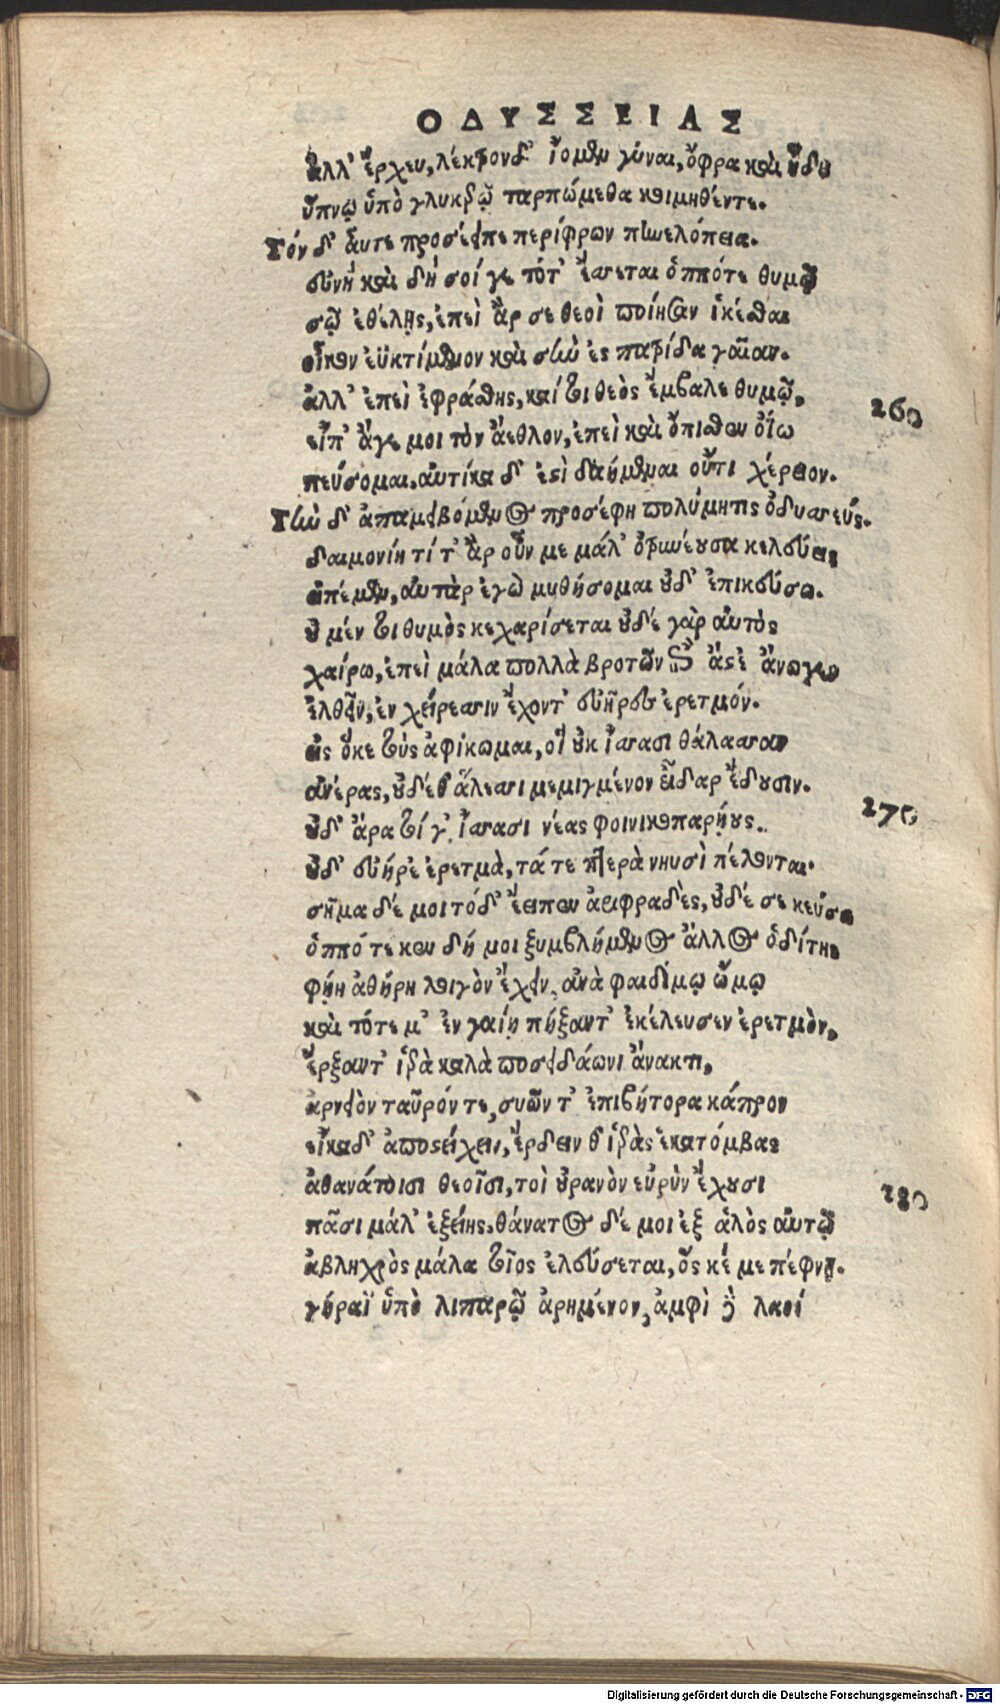 ΟΔΥΣΣΕΙΑΣ
ἀλλ' ἔρχευ, λέκτρονδ' ἴομεν γύναι, ὄφρα καὶ ἤδη
ὕπνῳ ὑπὸ γλυκερῷ ταρπώμεθα κοιμηθέντε.
Τόν δ' αὖτε προσέειπε περίφρων πηνελόπεια.
εὐνὴ καὶ δή σοί γε τότ' ἔσσεται ὁππότε θυμῷ
σῷ ἐθέλῃς, ἐπεὶ ἄρ σε θεοὶ ποίησαν ἱκέσθαι
οἶκον ἐϋκτίμενον καὶ σὴν ἐς πατρίδα γαῖαν.
ἀλλ' ἐπεὶ ἐφράσθης, καί τοι θεὸς ἔμβαλε θυμῷ,
260
εἴπ' ἄγε μοι τὸν ἄεθλον, ἐπεὶ καὶ ὄπισθεν ὀΐω
πεύσομαι, αὐτίκα δ' ἐστὶ δαήμεναι οὔτι χέρειον.
Τὴν δ' ἀπαμειβόμενος προσέφη πολύμητις ὀδυσσεύς.
δαιμονίη τί τ' ἂρ οὖν με μάλ' ὀτρυνέουσα κελεύεις
εἰπέμεν, αὐτὰρ ἐγὼ μυθήσομαι οὐδ' ἐπικεύσω.
οὐ μέν τοι θυμὸς κεχαρίσεται οὐδέ γὰρ αὐτὸς
χαίρω, ἐπεὶ μάλα πολλὰ βροτῶν ἐπὶ ἄστε ἄνωγεν
ἐλθεῖν, ἐν χείρεσσιν ἔχοντ' εὐῆρες ἐρετμόν.
εἰς ὅκε τοὺς ἀφίκωμαι, οἳ οὐκ ἴσασι θάλασσαν
ἀνέρας, οὐδέ θ' ἅλεσσι μεμιγμένον εἶδαρ ἔδουσιν.
270
οὐδ' ἄρα τοί γ' ἴσασι νέας φοινικοπαρῄους.
οὐδ' εὐήρε' ἐρετμὰ, τά τε πτερὰ νηυσὶ πέλονται.
σῆμα δέ μοι τόδ' ἔειπεν ἀειφραδὲς, οὐδέ σε κεύσω
ὁππότε κεν δή μοι ξυμβλήμενος ἄλλος ὁδίτης
φήῃ ἀθήρη λοιγὸν ἔχειν, ἀνὰ φαιδίμῳ ὤμῳ
καὶ τότε μ' ἐν γαίῃ πήξαντ' ἐκέλευσεν ἐρετμὸν,
ἔρξαντ' ἱερὰ καλὰ ποσειδάωνι ἄνακτι,
ἀρνειὸν ταῦρόν τε, συῶν τ' ἐπιβήτορα κάπρον
οἴκαδ' ἀποστείχειν, ἔρδειν θ' ἱερὰς ἑκατόμβας
ἀθανάτοισι θεοῖσι, τοὶ οὐρανὸν εὐρὺν ἔχουσι
280
πᾶσι μάλ' ἑξείης, θάνατος δέ μοι ἐξ ἁλὸς αὐτῷ
ἀβληχρὸς μάλα τοῖος ἐλεύσεται, ὅς κέ με πέφνῃ.
γήραϊ ὑπὸ λιπαρῷ ἀρημένον, ἀμφὶ δὲ λαοί
Digitalisierung gefördert durch die Deutsche Forschungsgemeinschaft - DFG